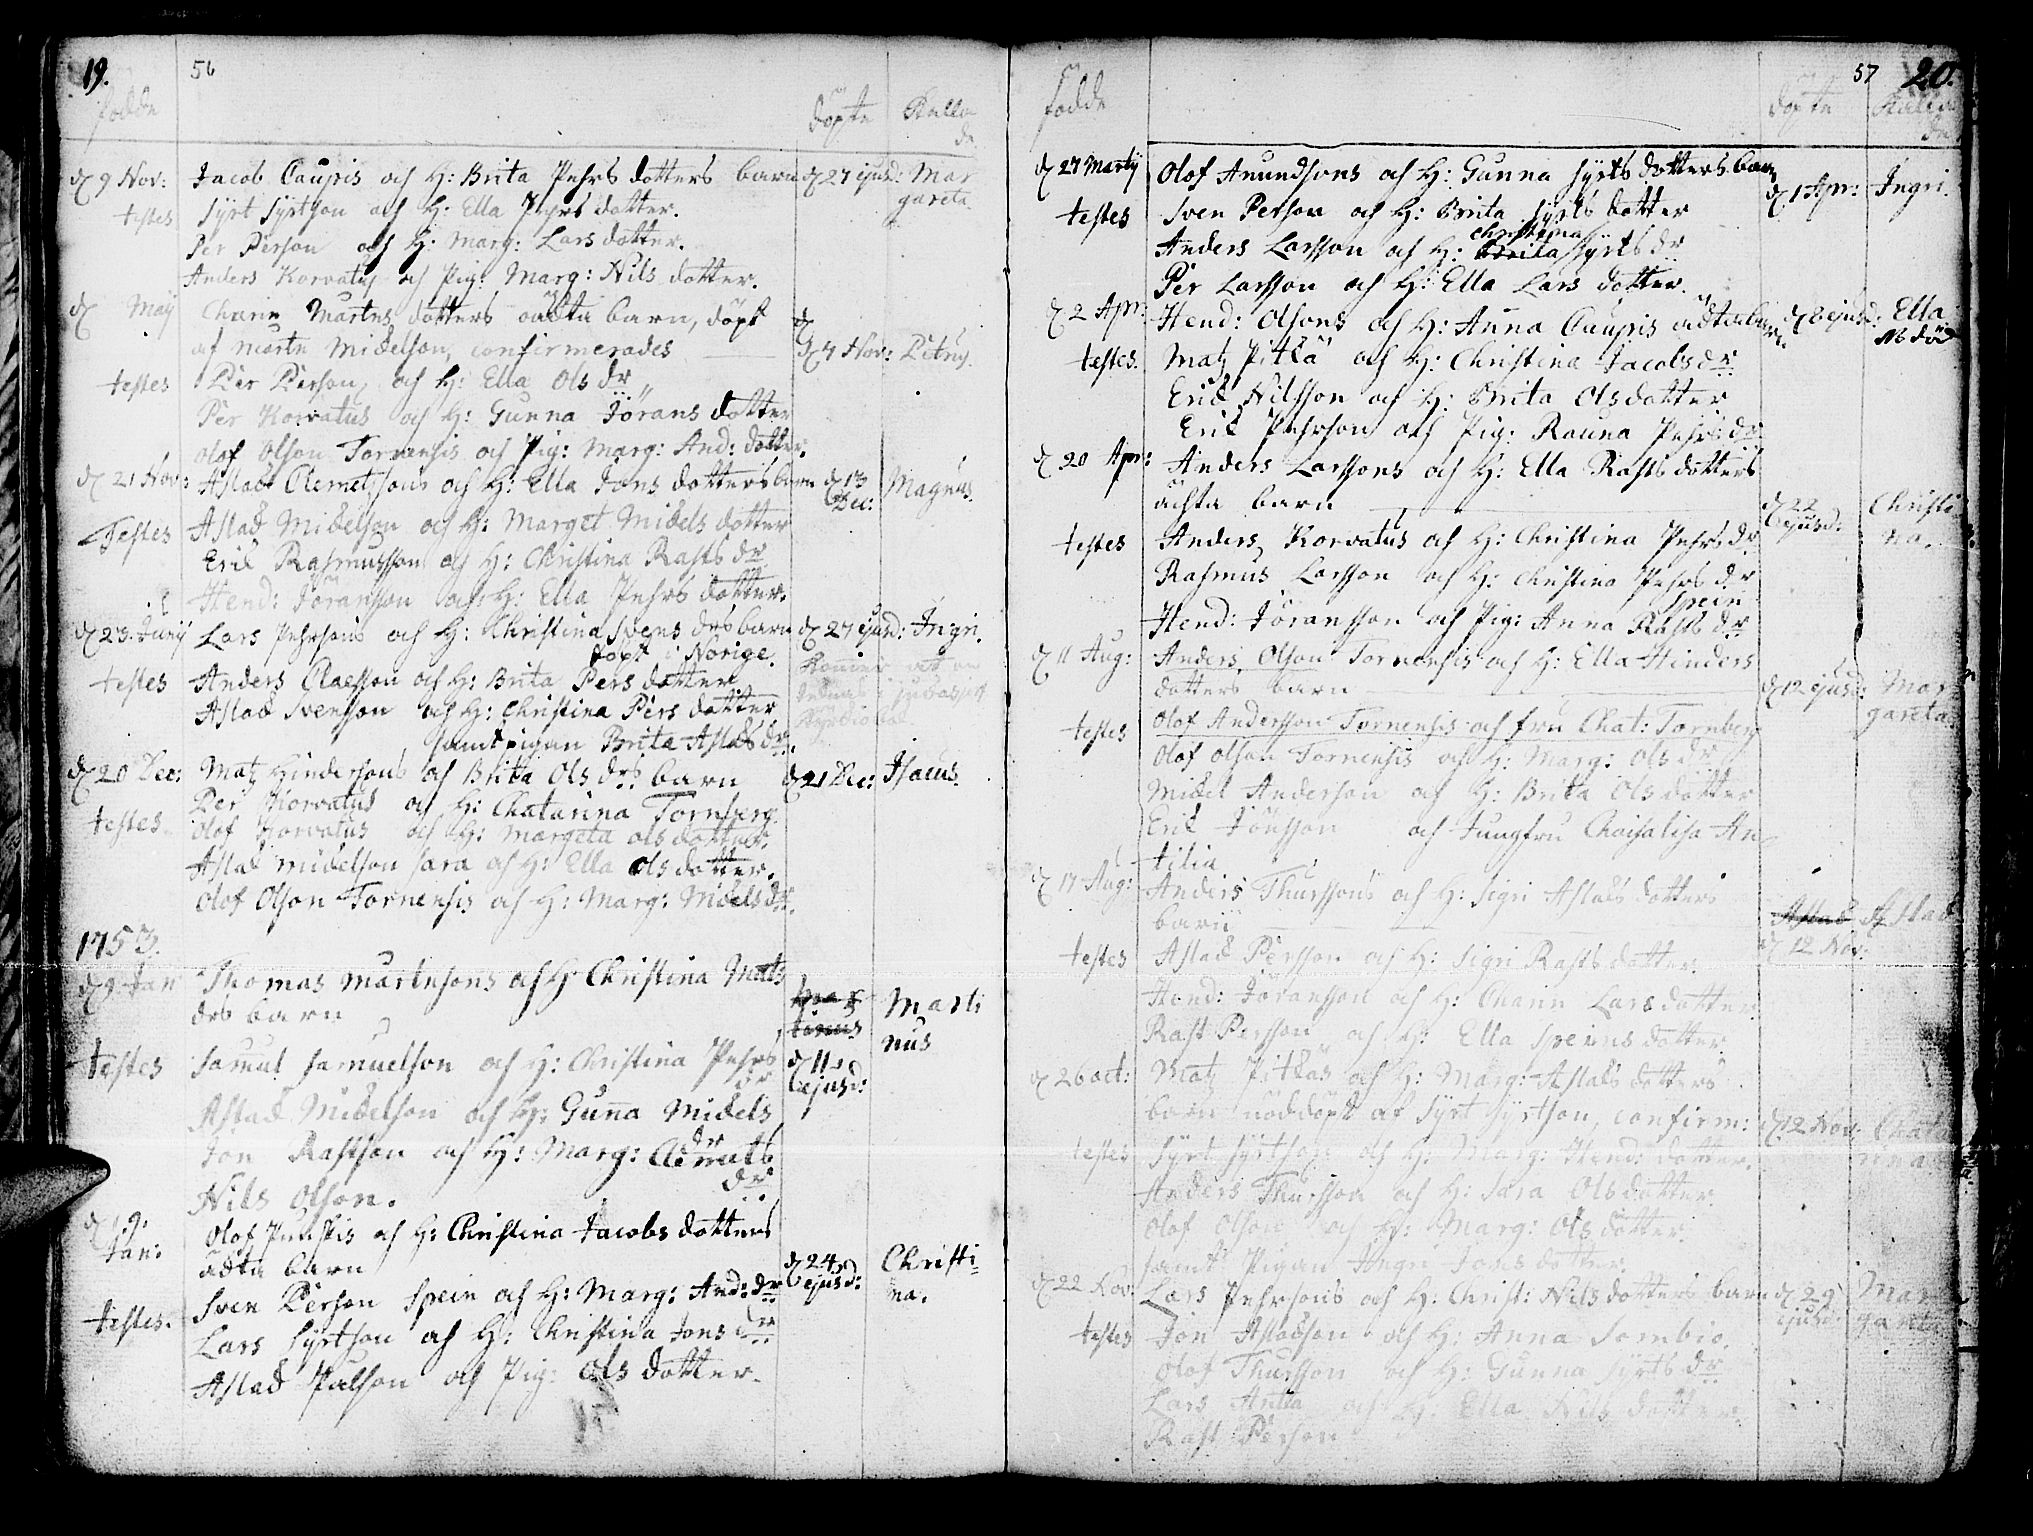 19. 56
födde döpte Kalla
de
d 9 Nov: Jacob Caupis och H: Brita Pehrs dotters barn d 27 ejusd: Mar
gareta
testes Syrt Syrtson och H: Ella Pehrs dotter.
Per Person och H: Marg: Lars dotter.
Anders Korvatus och Pig: Marg: Nils dotter.
d Maÿ Charin Martns dotters oächta barn, döpt d
af mårtn Michelson, confirmerades d 4 Nov: Petrus.
testes Per Person, och H: Ella Ols dr
Per Korvatus och H: Gunna Jörans dotter
Olof Olson Tornensis och Pig: Marg: And: dotter.
d 21 Nov: Aslach Clemetsons och H: Ella Jons dotters barn d 13 Dec: Magnus.
Testes Aslach Michelson och H: Marget Michels dotter
Eric Rasmusson och H: Christina Rasts dr
Hend: Jöransson och H: Ella Pehrs dotter.
d 23. Junÿ Lars Pehrsons och H: Christina Svens drs barn d 27 ejusd: Ingri.
döpt i Norige.
testes Anders Claesson och H: Brita Pers dotter
Aslach Svenson och H: Christina Pers dotter
samt pigan Brita Aslachs dr.
d 20 Dec: Matz Hindersons och Brita Ols drs barn d 21 Dec: Isacus.
testes Per Korvatus och H: Chatarina Tornberg.
Olof Korvatus och H: Margeta Ols dotter.
Aslach Michelson Sara och H: Ella Ols dotter.
Olof Olson Tornensis och H: Marg: Michels dr.
1753.
d 9 Jan Thomas Martnsons och H Christina Mats
drs barn Marti
nus
testes Samul Samuelson och H: Christina Pehrs dr d 11 ejusd:
Aslach Michelson och H: Gunna Michels
dr
Jon Rastson och H: Marg: Clemets
dr
Nils Olson.
d 19. Jan: Olof Punsis och H: Christina Jacobs dotters
ächta barn d 24 ejusd: Christi
na.
testes. Sven Person Spein och H: Marg: And: dr
Lars Syrtson och H: Christina Jons dr
Aslach Palson och Pig: Ols dotter.
57 20.
födde döpte Kalla
de
d 27 Martÿ Olof Anundsons och H: Gunna Syrts dotters barn d 1 Apr: Ingri.
testes Sven Person och H: Brita Syrts dotter
Christina
Anders Larsson och H: Brita Syrts dr
Per Larsson och H: Ella Lars dotter.
d 2 Apr: Hend: Olsons och H: Anna Caupis ächta barn d 8 ejusd: Ella
testes. Matz Pitka och H: Christina Jacobs dr
Erich Nilsson och H: Brita Ols dotter
Erik Pehrson och Pig: Rauna Pehrs dr
d 20 Apr: Anders Larssons och H: Ella Rasts dotters
ächta barn d 22 ejusd: Christi
na.
testes Anders Korvatus och H: Christina Pehrs dr
Rasmus Larsson och H: Christina Pehrs dr
Spein
Hend: Jöransson och Pig: Anna Rasts dr
d 11 Aug: Anders Olson Tornensis och H: Ella Hinders
dotters barn d 12 ejusd: Mar
gareta.
testes Olof Andersson Tornensis och fru Chat: Tornberg
Olof Olson Tornensis och H: Marg: Ols dr
Michel Anderson och H: Brita Ols dotter
Erik Jönsson och Jungfru Chaisalisa An
tilia
d 17 Aug: Anders Thurssons och H: Sigri Aslachs dotters
barn Aslach Aslach
testes Aslach Persson och H: Sigri Rasts dotter. d 12 Nov:
Hend: Jöransson och H: Charin Lars dotter
Rast Persson och H: Ella Speins dotter
d 26 oct: Matz Pitkas och H: Marg: Aslachs dotters
barn nöddöpt af Syrt Syrtson, confirm: d 12 Nov: Chata
rina
testes Syrt Syrtson och H: Marg: Hend: dotter.
Anders Thursson och H: Sara Ols dotter
Olof Olson och H: Marg: Ols dotter.
samt Pigan Ingri Jons dotter.
d 22 Nov: Lars Pehrsons och H: Christ: Nils dotters barn d 29 ejusd: Mar
gareta
testes Jon Aslachson och H: Anna Sombio.
Olof Thursson och H: Gunna Syrts dr
Lars Antia och H: Ella Nils dotter
Rast Person